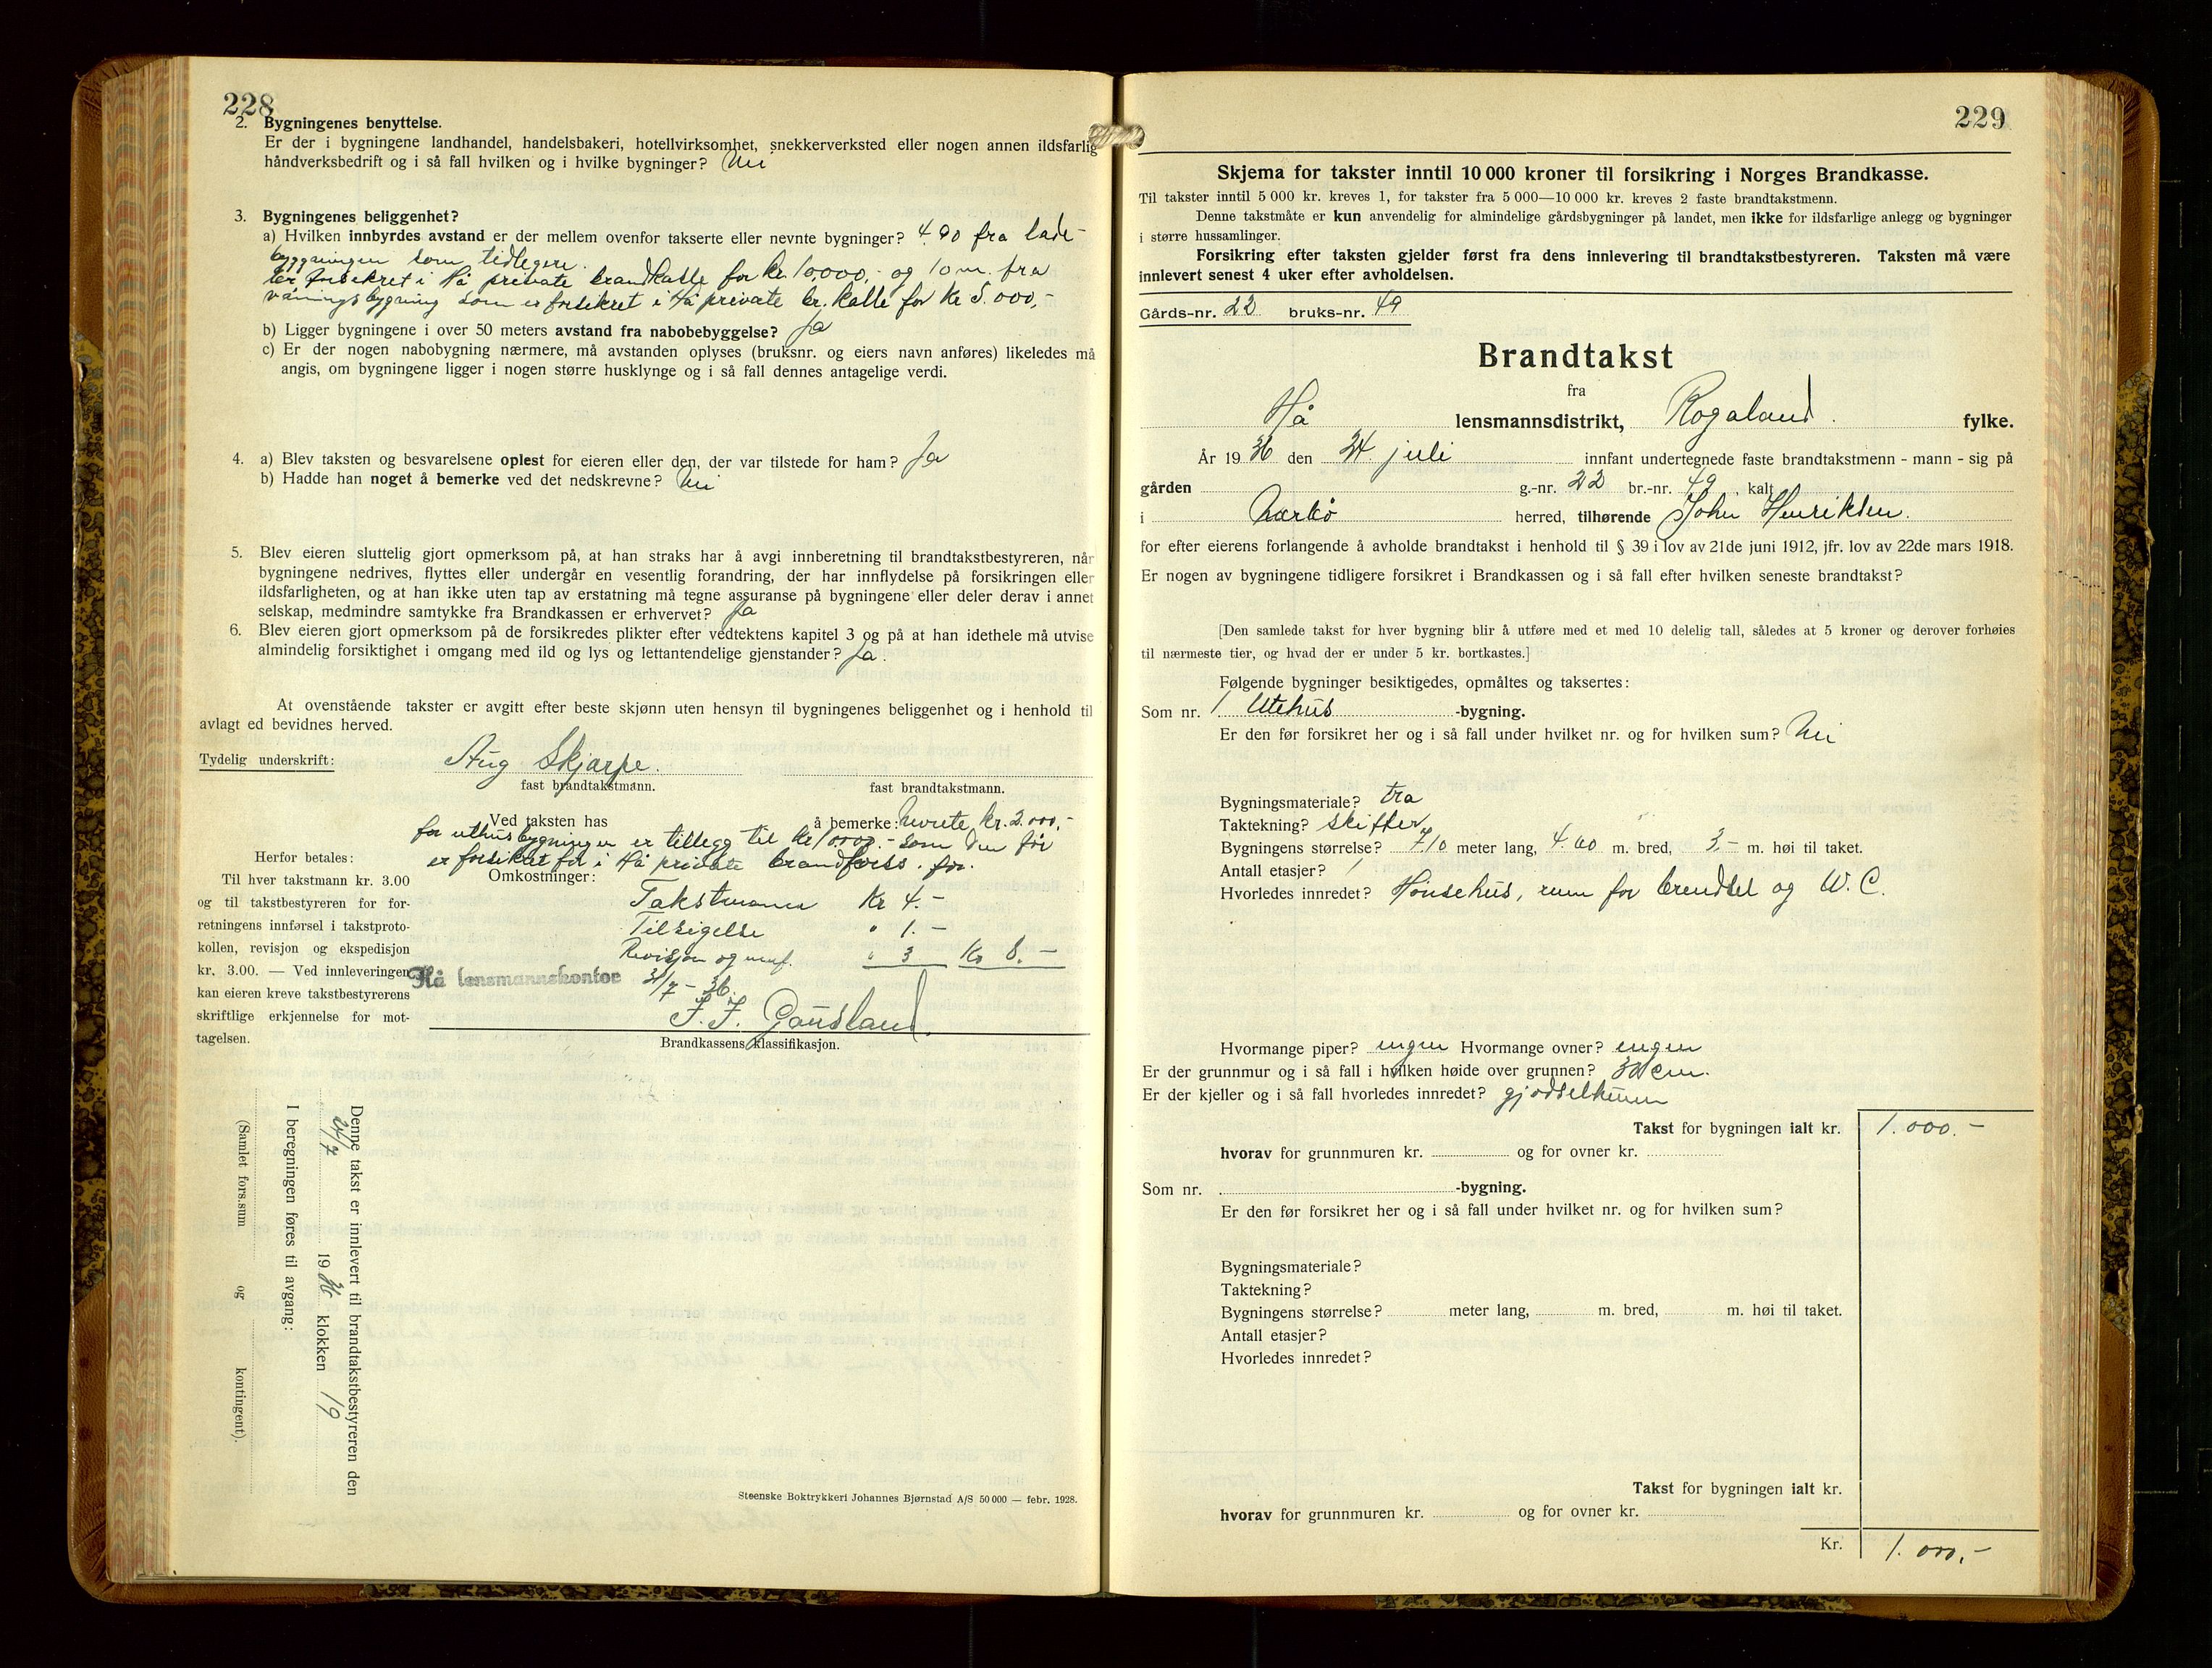 228
2. Bygningenes benyttelse.
Er der i bygningene landhandel, handelsbakeri, hotellvirksomhet, snekkerverksted eller nogen annen ildsfarlig
håndverksbedrift og i så fall hvilken og i hvilke bygninger? Nei
3. Bygningenes beliggenhet?
a) Hvilken innbyrdes avstand er der mellem ovenfor takserte eller nevnte bygninger? 4.90 fra lade-
byggningen som tidlegere
er forsikret i Hå private brandkasse for kr 10,000,- og 10 m. fra
våningsbygning som er forsikret i Hå private br.kasse for kr 5.000,-
b) Ligger bygningene i over 50 meters avstand fra nabobebyggelse? Ja
c) Er der nogen nabobygning nærmere, må avstanden oplyses (bruksnr. og eiers navn anføres) likeledes må
angis, om bygningene ligger i nogen større husklynge og i så fall dennes antagelige verdi.
4. a) Blev taksten og besvarelsene oplest for eieren eller den, der var tilstede for ham? Ja
b) Hadde han noget å bemerke ved det nedskrevne? Nei
5. Blev eieren sluttelig gjort opmerksom på, at han straks har å avgi innberetning til brandtakstbestyreren, når
bygningene nedrives, flyttes eller undergår en vesentlig forandring, der har innflydelse på forsikringen eller
ildsfarligheten, og at han ikke uten tap av erstatning må tegne assuranse på bygningene eller deler derav i annet
selskap, medmindre samtykke fra Brandkassen er erhvervet? Ja
6. Blev eieren gjort opmerksom på de forsikredes plikter efter vedtektens kapitel 3 og på at han idethele må utvise
almindelig forsiktighet i omgang med ild og lys og lettantendelige gjenstander? Ja.
At ovenstående takster er avgitt efter beste skjønn uten hensyn til bygningenes beliggenhet og i henhold til
avlagt ed bevidnes herved.
Tydelig underskrift: Aug Skjarpe.
fast brandtakstmann. fast brandtakstmann.
Ved taksten has å bemerke: kr. 2.000,-
for uthusbygningen er tillegg til kr 10000.- som den før
er forsikret for i Hå private
Omkostninger:
Takstmann Kr 4.-
Tilsigelse " 1.-
Revisjon og " 3 Kr 8.-
Hå lensmannskontor 31/7-36.
F. F. Gausland.
Brandkassens klassifikasjon.
Herfor betales:
Til hver takstmann kr. 3.00
og til takstbestyreren for for-
retningens innførsel i takstproto-
kollen, revisjon og ekspedisjon
kr. 3.00. — Ved innleveringen
kan eieren kreve takstbestyrerens
skriftlige erkjennelse for mot-
tagelsen.
Denne takst er innlevert til brandtakstbestyreren den
24/7 1936 klokken 19
I beregningen føres til avgang:
(Samlet fors.sum og kontingent).
Steenske Boktrykkeri Johannes Bjørnstad A/S 50 000 — febr. 1928.
229
Skjema for takster inntil 10 000 kroner til forsikring i Norges Brandkasse.
Til takster inntil 5 000 kr. kreves 1, for takster fra 5 000—10 000 kr. kreves 2 faste brandtakstmenn.
Denne takstmåte er kun anvendelig for almindelige gårdsbygninger på landet, men ikke for ildsfarlige anlegg og bygninger
i større hussamlinger.
Forsikring efter taksten gjelder først fra dens innlevering til brandtakstbestyreren. Taksten må være
innlevert senest 4 uker efter avholdelsen.
Gårds-nr. 22 bruks-nr. 49
Brandtakst
fra
Hå lensmannsdistrikt, Rogaland. fylke.
År 1936 den 24 juli innfant undertegnede faste brandtakstmenn - mann - sig på
gården g.-nr. 22 br.-nr. 49, kalt
i Nærbø herred, tilhørende John Henriksen.
for efter eierens forlangende å avholde brandtakst i henhold til § 39 i lov av 21de juni 1912, jfr. lov av 22de mars 1918.
Er nogen av bygningene tidligere forsikret i Brandkassen og i så fall efter hvilken seneste brandtakst?
[Den samlede takst for hver bygning blir å utføre med et med 10 delelig tall, således at 5 kroner og derover forhøies
til nærmeste tier, og hvad der er under 5 kr. bortkastes.]
Følgende bygninger besiktigedes, opmåltes og taksertes:
Som nr. 1 Utehus -bygning.
Er den før forsikret her og i så fall under hvilket nr. og for hvilken sum? Nei
Bygningsmateriale? tra
Taktekning? skiffer
Bygningens størrelse? 7,10 meter lang, 4.60 m. bred, 3,- m. høi til taket.
Antall etasjer? 1
Hvorledes innredet? Hønsehus, rum for brendsel og W.C.
Hvormange piper? ingen Hvormange ovner? engen
Er der grunnmur og i så fall i hvilken høide over grunnen? 30 cm.
Er der kjeller og i så fall hvorledes innredet? gjødselkum
Takst for bygningen ialt kr. 1.000.-
hvorav for grunnmuren kr. og for ovner kr.
Som nr. -bygning.
Er den før forsikret her og i så fall under hvilket nr. og for hvilken sum?
Bygningsmateriale?
Taktekning?
Bygningens størrelse? meter lang, m. bred, m. høi til taket.
Antall etasjer?
Hvorledes innredet?
Takst for bygningen ialt kr.
hvorav for grunnmuren kr. og for ovner kr.
Kr. 1.000,-